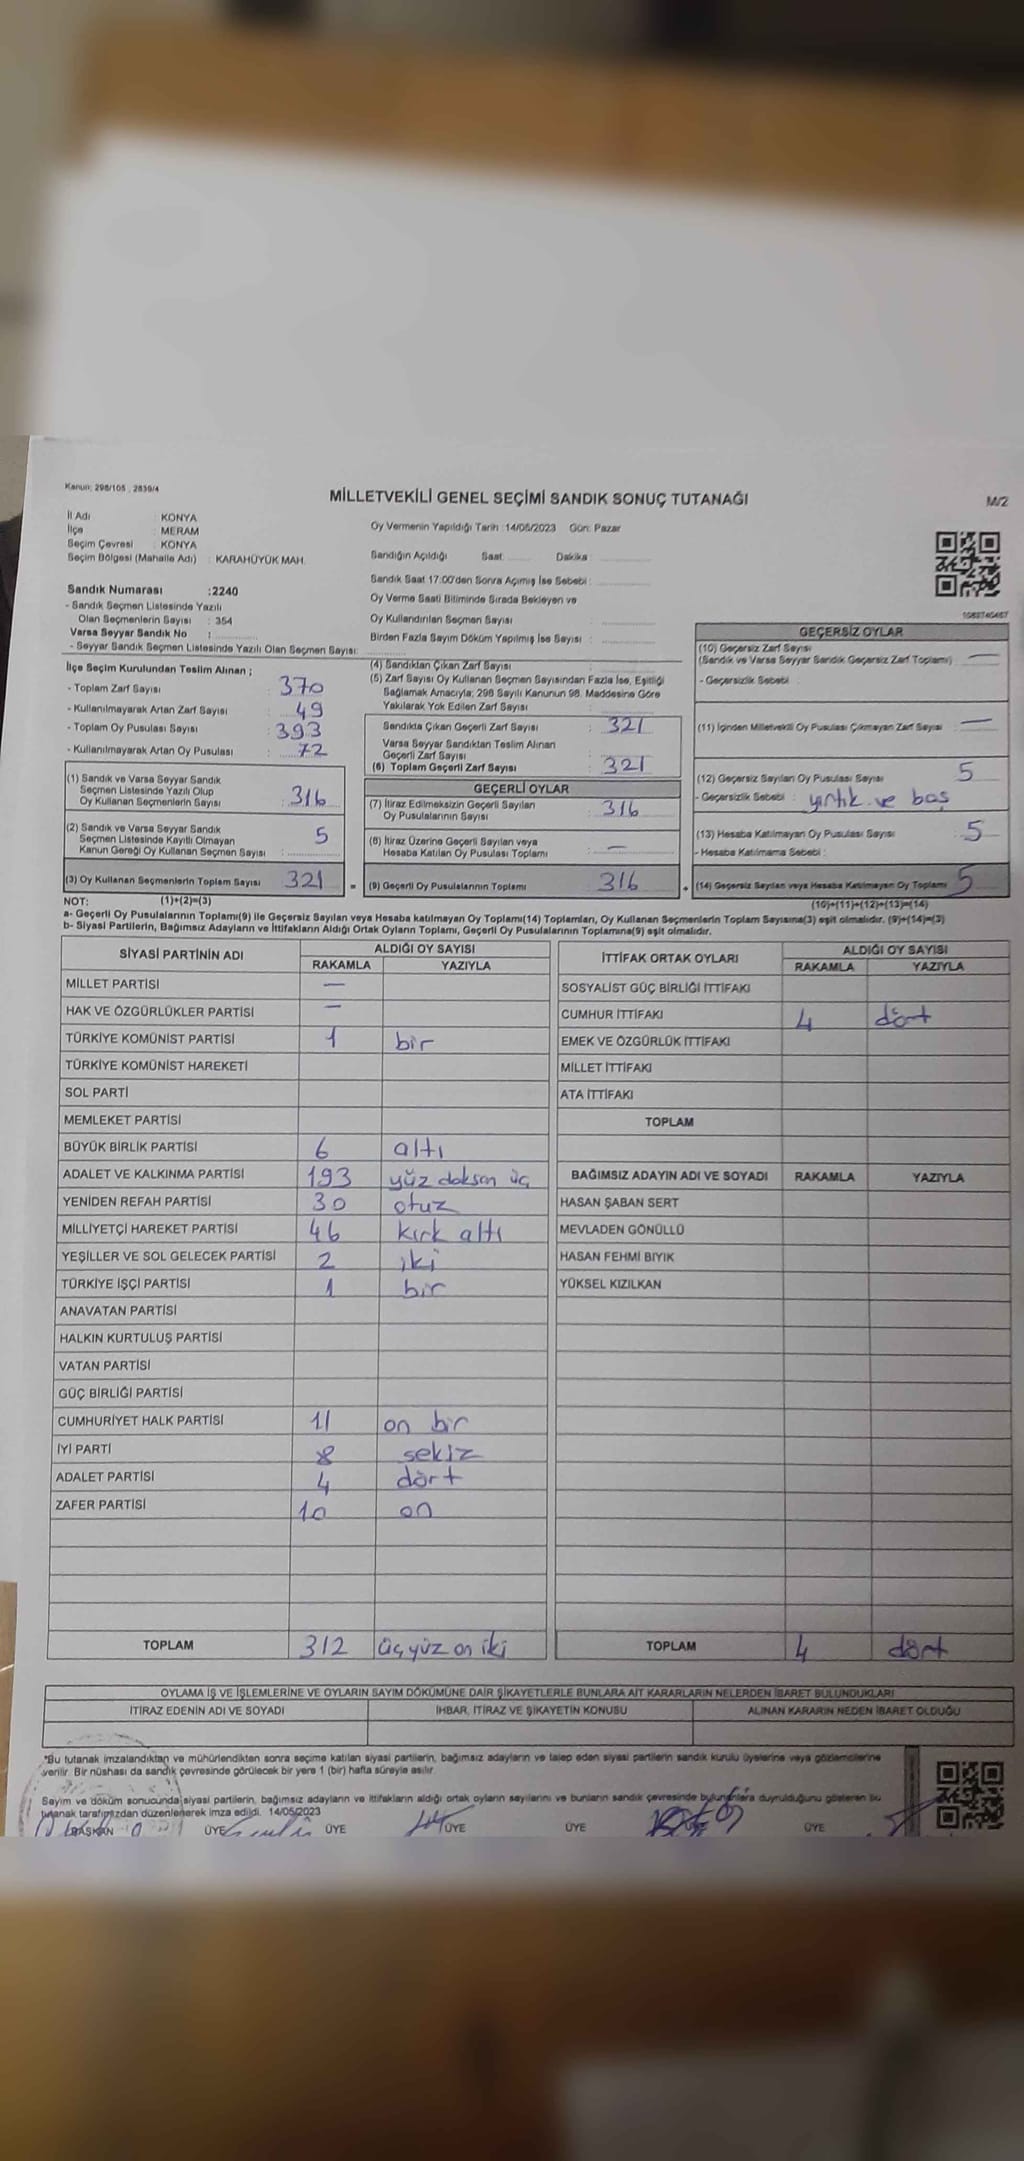 Kanun: 298/105 , 2839/4
MİLLETVEKİLİ GENEL SEÇİMİ SANDIK SONUÇ TUTANAĞI
M/2
İl Adı : KONYA
İlçe : MERAM
Seçim Çevresi : KONYA
Seçim Bölgesi (Mahalle Adı) : KARAHÜYÜK MAH.
Oy Vermenin Yapıldığı Tarih :14/05/2023 Gün: Pazar
Sandığın Açıldığı Saat: Dakika :
Sandık Saat 17:00'den Sonra Açımış İse Sebebi :
Oy Verme Saati Bitiminde Sırada Bekleyen ve
Oy Kullandırılan Seçmen Sayısı :
Birden Fazla Sayım Döküm Yapılmış İse Sayısı :
Sandık Numarası :2240
- Sandık Seçmen Listesinde Yazılı
Olan Seçmenlerin Sayısı : 354
Varsa Seyyar Sandık No :
- Seyyar Sandık Seçmen Listesinde Yazılı Olan Seçmen Sayısı:
İlçe Seçim Kurulundan Teslim Alınan ;
- Toplam Zarf Sayısı : 370
- Kullanılmayarak Artan Zarf Sayısı : 49
- Toplam Oy Pusulası Sayısı : 393
- Kullanılmayarak Artan Oy Pusulası : 72
(1) Sandık ve Varsa Seyyar Sandık
Seçmen Listesinde Yazılı Olup
Oy Kullanan Seçmenlerin Sayısı : 316
(2) Sandık ve Varsa Seyyar Sandık
Seçmen Listesinde Kayıtlı Olmayan
Kanun Gereği Oy Kullanan Seçmen Sayısı : 5
(3) Oy Kullanan Seçmenlerin Toplam Sayısı : 321 =
(4) Sandıktan Çıkan Zarf Sayısı :
(5) Zarf Sayısı Oy Kullanan Seçmen Sayısından Fazla İse, Eşitliği
Sağlamak Amacıyla; 298 Sayılı Kanunun 98. Maddesine Göre
Yakılarak Yok Edilen Zarf Sayısı :
Sandıkta Çıkan Geçerli Zarf Sayısı : 321
Varsa Seyyar Sandıktan Teslim Alınan
Geçerli Zarf Sayısı
(6) Toplam Geçerli Zarf Sayısı : 321
GEÇERLİ OYLAR
(7) İtiraz Edilmeksizin Geçerli Sayılan
Oy Pusulalarının Sayısı : 316
(8) İtiraz Üzerine Geçerli Sayılan veya
Hesaba Katılan Oy Pusulası Toplamı : —
(9) Geçerli Oy Pusulalarının Toplamı : 316 +
1083740467
GEÇERSİZ OYLAR
(10) Geçersiz Zarf Sayısı
(Sandık ve Varsa Seyyar Sandık Geçersiz Zarf Toplamı) : —
- Geçersizlik Sebebi :
(11) İçinden Milletvekili Oy Pusulası Çıkmayan Zarf Sayısı : —
(12) Geçersiz Sayılan Oy Pusulası Sayısı : 5
- Geçersizlik Sebebi : yırtık ve boş
(13) Hesaba Katılmayan Oy Pusulası Sayısı : 5
- Hesaba Katılmama Sebebi :
(14) Geçersiz Sayılan veya Hesaba Katılmayan Oy Toplamı : 5
NOT: (1)+(2)=(3)
(10)+(11)+(12)+(13)=(14)
a- Geçerli Oy Pusulalarının Toplamı(9) ile Geçersiz Sayılan veya Hesaba katılmayan Oy Toplamı(14) Toplamları, Oy Kullanan Seçmenlerin Toplam Sayısına(3) eşit olmalıdır. (9)+(14)=(3)
b- Siyasi Partilerin, Bağımsız Adayların ve İttifakların Aldığı Ortak Oyların Toplamı, Geçerli Oy Pusulalarının Toplamına(9) eşit olmalıdır.
SİYASİ PARTİNİN ADI ALDIĞI OY SAYISI
RAKAMLA YAZIYLA
MİLLET PARTİSİ —
HAK VE ÖZGÜRLÜKLER PARTİSİ —
TÜRKİYE KOMÜNİST PARTİSİ 1 bir
TÜRKİYE KOMÜNİST HAREKETİ
SOL PARTİ
MEMLEKET PARTİSİ
BÜYÜK BİRLİK PARTİSİ 6 altı
ADALET VE KALKINMA PARTİSİ 193 yüz doksan üç
YENİDEN REFAH PARTİSİ 30 otuz
MİLLİYETÇİ HAREKET PARTİSİ 46 kırk altı
YEŞİLLER VE SOL GELECEK PARTİSİ 2 iki
TÜRKİYE İŞÇİ PARTİSİ 1 bir
ANAVATAN PARTİSİ
HALKIN KURTULUŞ PARTİSİ
VATAN PARTİSİ
GÜÇ BİRLİĞİ PARTİSİ
CUMHURİYET HALK PARTİSİ 11 on bir
İYİ PARTİ 8 sekiz
ADALET PARTİSİ 4 dört
ZAFER PARTİSİ 10 on
TOPLAM 312 üçyüz on iki
İTTİFAK ORTAK OYLARI ALDIĞI OY SAYISI
RAKAMLA YAZIYLA
SOSYALİST GÜÇ BİRLİĞİ İTTİFAKI
CUMHUR İTTİFAKI 4 dört
EMEK VE ÖZGÜRLÜK İTTİFAKI
MİLLET İTTİFAKI
ATA İTTİFAKI
TOPLAM
BAĞIMSIZ ADAYIN ADI VE SOYADI RAKAMLA YAZIYLA
HASAN ŞABAN SERT
MEVLADEN GÖNÜLLÜ
HASAN FEHMİ BIYIK
YÜKSEL KIZILKAN
TOPLAM 4 dört
OYLAMA İŞ VE İŞLEMLERİNE VE OYLARIN SAYIM DÖKÜMÜNE DAİR ŞİKAYETLERLE BUNLARA AİT KARARLARIN NELERDEN İBARET BULUNDUKLARI
İTİRAZ EDENİN ADI VE SOYADI İHBAR, İTİRAZ VE ŞİKAYETİN KONUSU ALINAN KARARIN NEDEN İBARET OLDUĞU
*Bu tutanak imzalandıktan ve mühürlendikten sonra seçime katılan siyasi partilerin, bağımsız adayların ve talep eden siyasi partilerin sandık kurulu üyelerine veya gözlemcilerine
verilir. Bir nüshası da sandık çevresinde görülecek bir yere 1 (bir) hafta süreyle asılır.
Sayım ve döküm sonucunda siyasi partilerin, bağımsız adayların ve ittifakların aldığı ortak oyların sayılarını ve bunların sandık çevresinde bulunanlara duyrulduğunu gösteren bu
tutanak tarafımızdan düzenlenerek imza edildi. 14/05/2023
BAŞKAN ÜYE ÜYE ÜYE ÜYE ÜYE